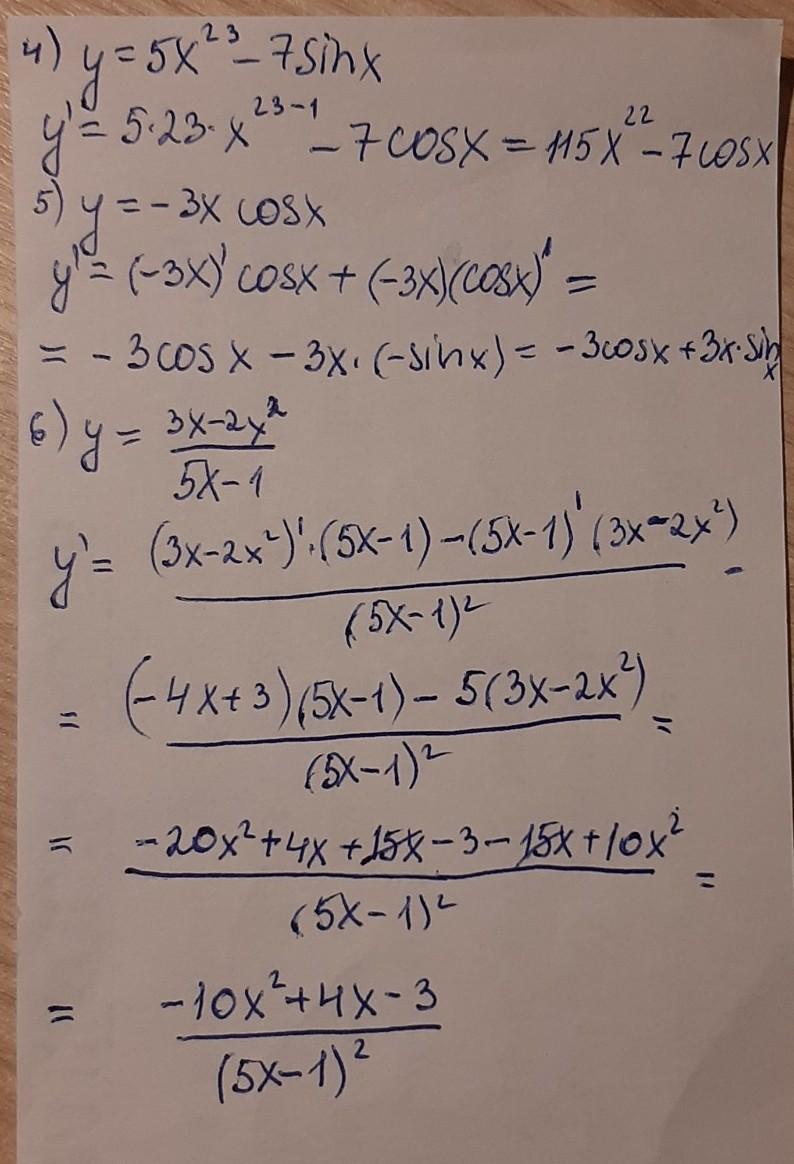 4) y = 5x²³ - 7sinx
y' = 5·23·x²³⁻¹ - 7cosx = 115x²² - 7cosx
5) y = -3x cosx
y' = (-3x)' cosx + (-3x)(cosx)' =
= -3cosx - 3x·(-sinx) = -3cosx + 3x·sinx
6) y = (3x-2x²)/(5x-1)
y' = ((3x-2x²)'·(5x-1) - (5x-1)'(3x-2x²))/(5x-1)² -
= ((-4x+3)(5x-1) - 5(3x-2x²))/(5x-1)² =
= (-20x²+4x+15x-3-15x+10x²)/(5x-1)² =
= (-10x²+4x-3)/(5x-1)²